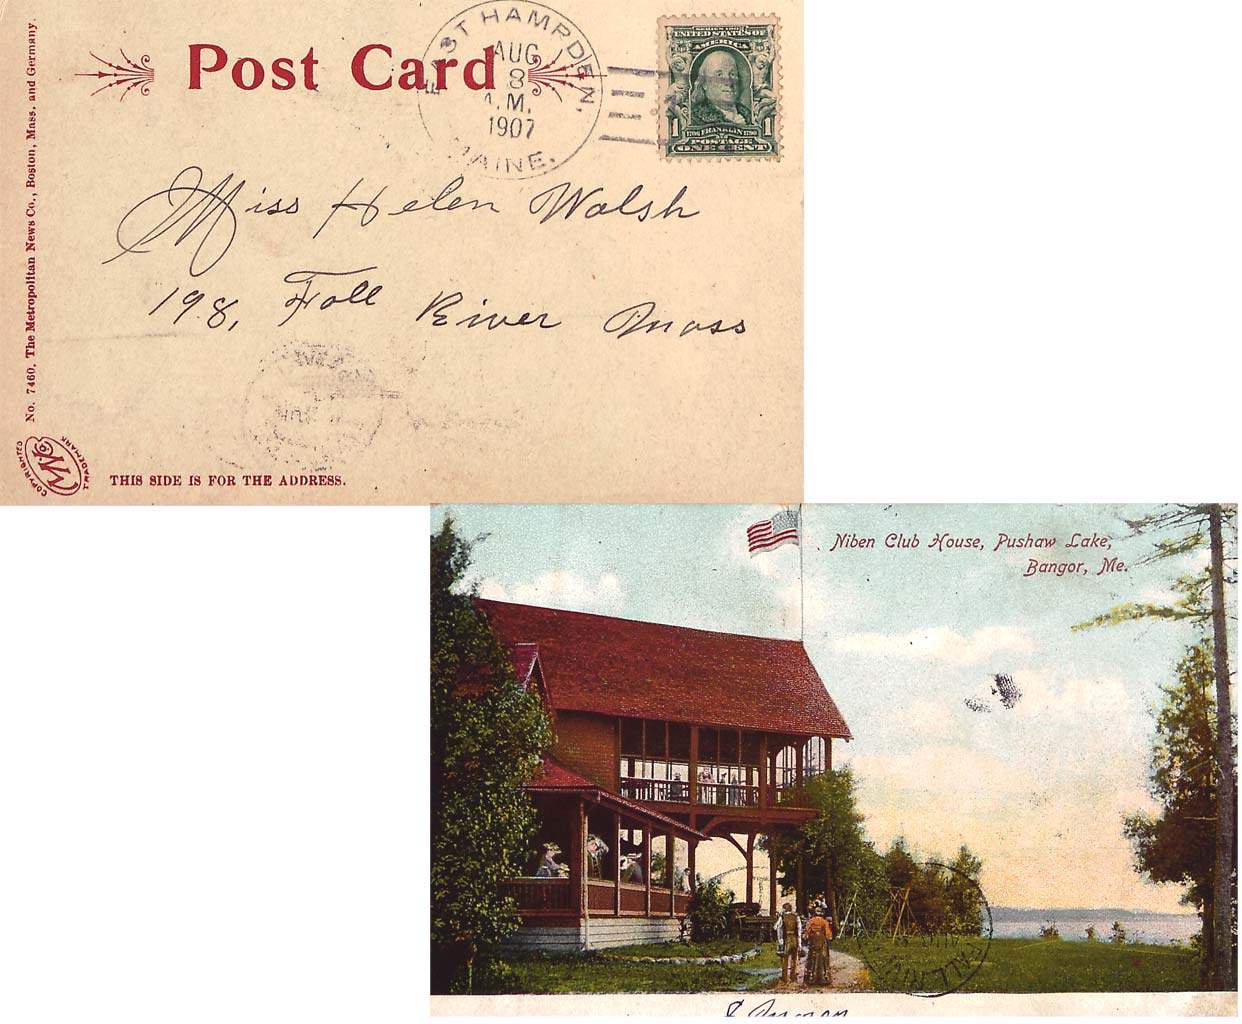 Post Card
EAST HAMPDEN,
AUG
8
A.M.
1907
MAINE.
SERIES 1902
UNITED STATES OF
AMERICA
1 1706 FRANKLIN 1790 1
POSTAGE
ONE CENT
Miss Helen Walsh
198, Fall River Mass
No. 7460. The Metropolitan News Co., Boston, Mass. and Germany.
COPYRIGHTED
M.N.Co.
TRADEMARK
THIS SIDE IS FOR THE ADDRESS.
Niben Club House, Pushaw Lake,
Bangor, Me.
FALL RIV